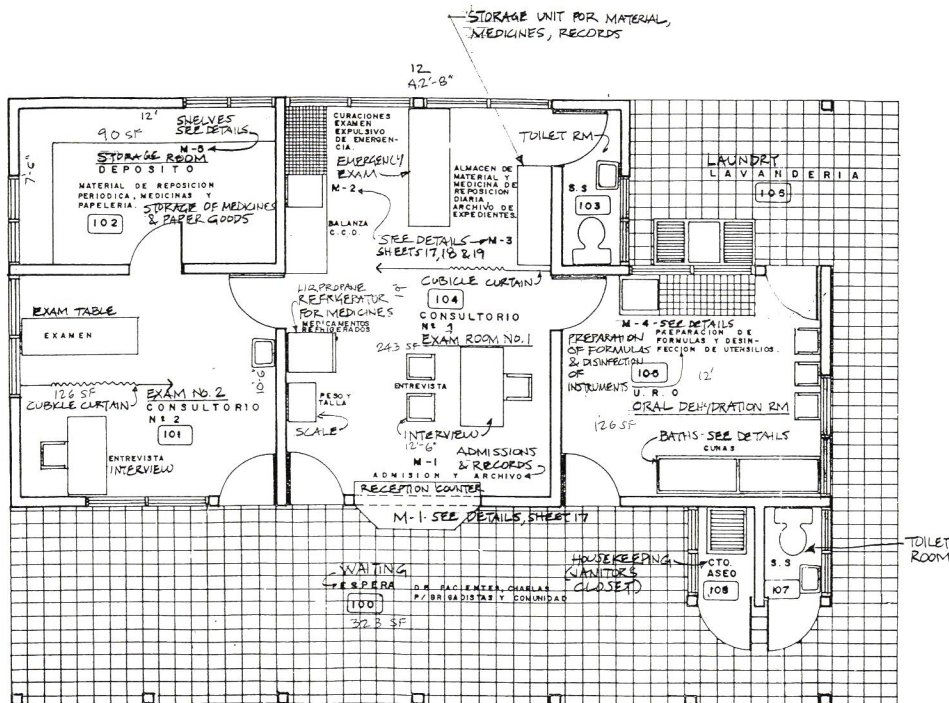 STORAGE UNIT FOR MATERIAL,
MEDICINES, RECORDS
12
A2'-8"
12'
90 SF
7'-6"
SHELVES
SEE DETAILS
M-5
STORAGE ROOM
DEPOSITO
MATERIAL DE REPOSICION
PERIODICA, MEDICINAS Y
PAPELERIA.
STORAGE OF MEDICINES
& PAPER GOODS
102
CURACIONES
EXAMEN
EXPULSIVO
DE EMERGEN-
CIA.
EMERGENCY
EXAM
M-2
BALANZA
C.C.D.
ALMACEN DE
MATERIAL Y
MEDICINA DE
REPOSICION
DIARIA,
ARCHIVO DE
EXPEDIENTES.
SEE DETAILS M-3
SHEETS 17, 18 & 19
TOILET RM
S.S
103
LAUNDRY
LAVANDERIA
105
CUBICLE CURTAIN
104
CONSULTORIO
Nº 1
EXAM ROOM NO. 1
LIQ. PROPANE
REFRIGERATOR
FOR MEDICINES
MEDICAMENTOS
REFRIGERADOS
243 SF
ENTREVISTA
PESO Y
TALLA
SCALE
INTERVIEW
12'-6"
M-1
ADMISSIONS
& RECORDS
ADMISION Y ARCHIVO
RECEPTION COUNTER
M-1- SEE DETAILS, SHEET 17
EXAM TABLE
EXAMEN
126 SF
CUBICLE CURTAIN
10'-6"
EXAM NO. 2
CONSULTORIO
Nº 2
101
ENTREVISTA
INTERVIEW
M-4 - SEE DETAILS
PREPARACION DE
FORMULAS Y DESIN-
FECCION DE UTENSILIOS.
PREPARATION
OF FORMULAS
& DISINFECTION
OF
INSTRUMENTS
106
12'
U.R.O
ORAL DEHYDRATION RM
126 SF
BATHS-SEE DETAILS
CUNAS
WAITING
ESPERA
DE PACIENTES, CHARLAS
P/ BRIGADISTAS Y COMUNIDAD
100
323 SF
HOUSEKEEPING
(JANITOR'S
CLOSET)
CTO.
ASEO
108
S.S
107
TOILET
ROOM